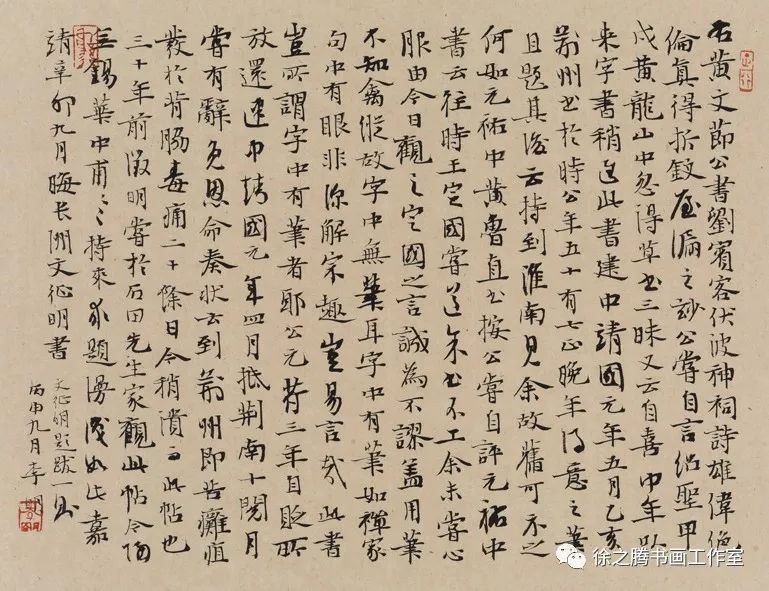 右黄文節公書劉賓客伏波神祠詩雄偉絶
倫真得折釵屋漏之妙公嘗自言紹聖甲
戌黄龍山中忽得草書三昧又云自喜中年以
来字書稍進此書建中靖國元年五月乙亥
荊州書於時公年五十有七正晚年得意之筆
且題其後云持到淮南見余故舊可示之
何如元祐中黄魯直書按公嘗自評元祐中
書云往時王定國嘗道余書不工余未嘗心
服由今日觀之定國之言誠為不謬蓋用筆
不知禽縱故字中無筆耳字中有筆如禪家
句中有眼非深解宗趣豈易言哉此書
豈所謂字中有筆者耶公元符三年自貶所
放還建中靖國元年四月抵荆南十閱月
嘗有辭免恩命奏状云到荆州即苦癰疽
發於背脇毒痛二十餘日今稍潰此帖也
三十年前徵明嘗於石田先生家觀此帖今
無錫華中甫〻持來求題漫識如此嘉
靖辛卯九月晦長洲文征明書
文征明題跋一則
丙申九月李
徐之腾书画工作室